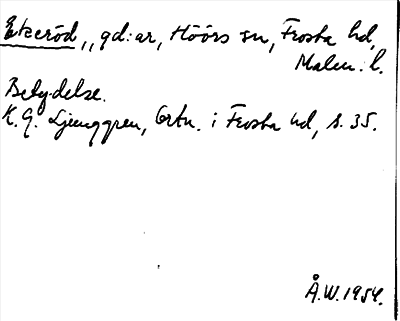 Ekeröd,, gd:ar, Höörs sn, Frosta hd,
Malm. l.
Betydelse.
K. G. Ljunggren, Ortn. i Frosta hd, s. 35.
Å.W. 1954.